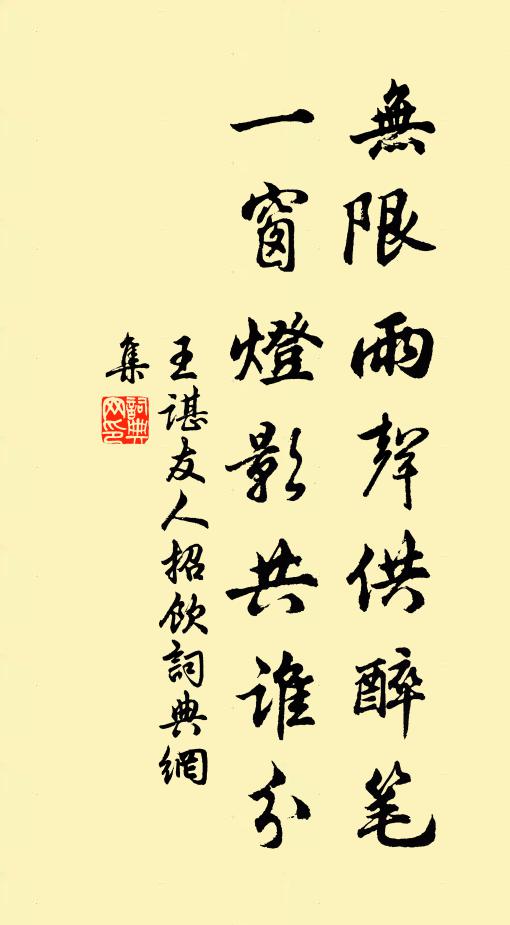 無限雨聲供醉笔
一窗燈影共誰分
王諶友人招飲詞典網
集
詞典
网印